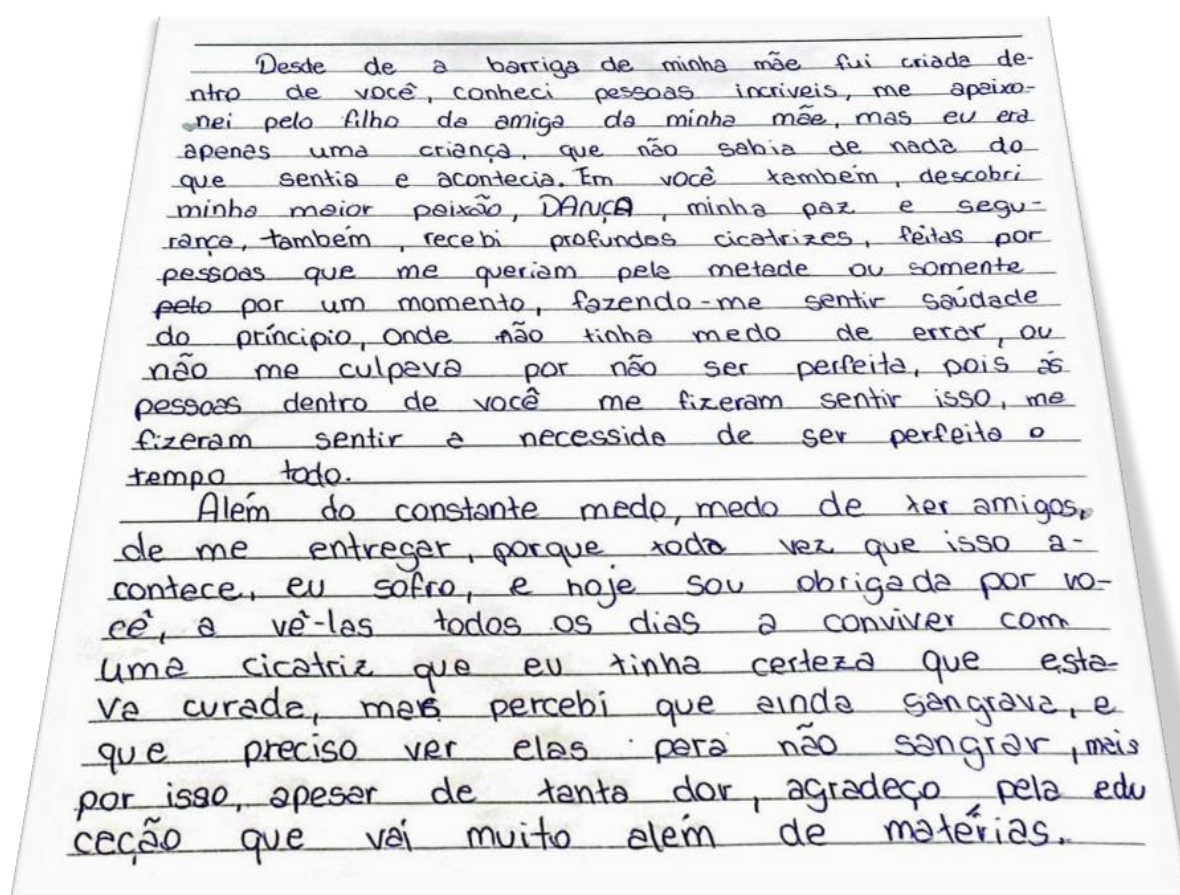 Desde de a barriga de minha mãe fui criada de-
ntro de você, conheci pessoas incriveis, me apaixo-
nei pelo filho da amiga da minha mãe, mas eu era
apenas uma criança, que não sabia de nada do
que sentia e acontecia. Em você também, descobri
minha maior paixão, DANÇA, minha paz e segu-
rança, também, recebi profundas cicatrizes, feitas por
pessoas que me queriam pela metade ou somente
pelo por um momento, fazendo-me sentir saúdade
do príncipio, onde não tinha medo de errar, ou
não me culpava por não ser perfeita, pois ás
pessoas dentro de você me fizeram sentir isso, me
fizeram sentir a necessida de ser perfeita o
tempo todo.
Além do constante medo, medo de ter amigos,
de me entregar, porque toda vez que isso a-
contece, eu sofro, e hoje sou obrigada por vo-
cê, a vê-las todos os dias a conviver com
uma cicatriz que eu tinha certeza que esta-
va curada, mas percebi que ainda sangrava, e
que preciso ver elas para não sangrar, mais
por isso, apesar de tanta dor, agradeço pela edu
cação que vai muito além de matérias.